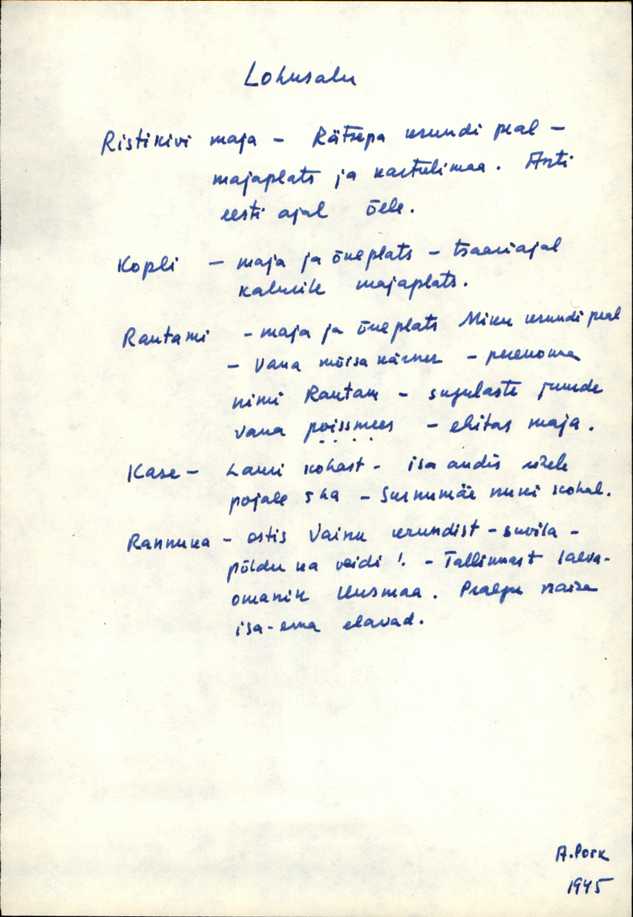 Lohusalu
Ristikivi maja – Rätsepa krundi peal –
majaplats ja kartulimaa. Anti
eesti ajal õele.
Kopli – maja ja õueplats – tsaariajal
kalurile majaplats.
Rautami – maja ja õueplats Miku krundi peal
– Vana mõisa kärner – perekonna
nimi Rautam – sugulaste juurde
vana poissmees – ehitas maja.
Kase – Lauri kohast – isa andis ühele
pojale 5 ha – Surnumäe nuki kohal.
Rannuka – ostis Vainu krundist – suvila –
põldu ka veidi! – Tallinnast laeva-
omanik Uusmaa. Praegu naise
isa-ema elavad.
A. Pork
1945